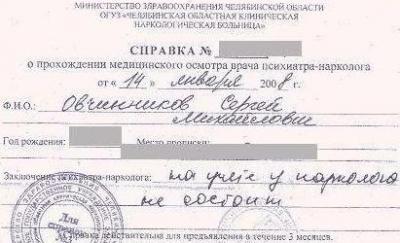 МИНИСТЕРСТВО ЗДРАВООХРАНЕНИЯ ЧЕЛЯБИНСКОЙ ОБЛАСТИ
ОГУЗ «ЧЕЛЯБИНСКАЯ ОБЛАСТНАЯ КЛИНИЧЕСКАЯ
НАРКОЛОГИЧЕСКАЯ БОЛЬНИЦА»
СПРАВКА №
о прохождении медицинского осмотра врача психиатра-нарколога
от « 14 » января 2008 г.
Ф.И.О.: Овчинников Сергей
Михайлович
Год рождения: Место прописки:
Заключение психиатра-нарколога: на учёте у нарколога
не состоит
Для
Справка действительна для предъявления в течение 3 месяцев.